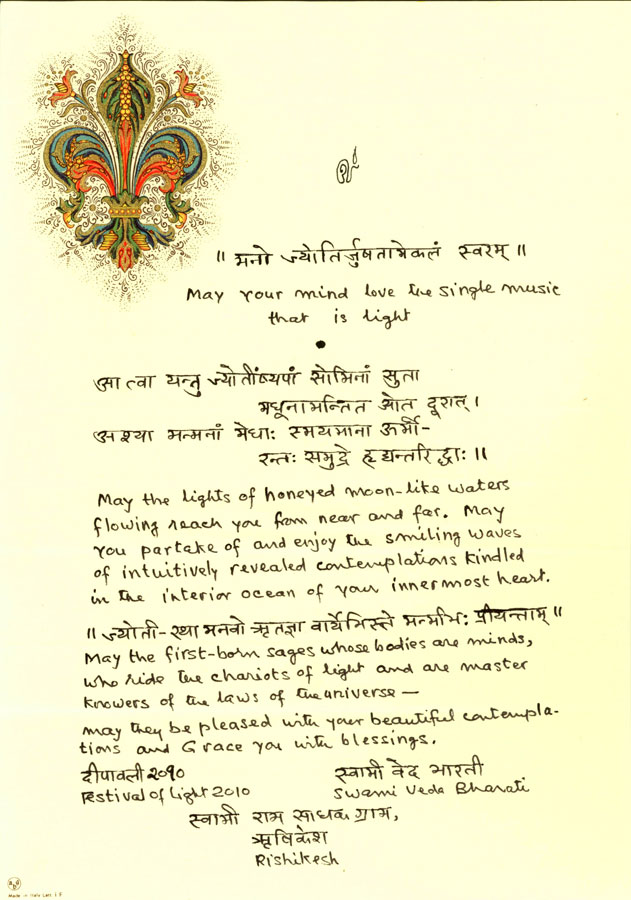 ॥ मनो ज्योतिर्जुषतामेकलं स्वरम् ॥
May your mind love the single music
that is light
आ त्वा यन्तु ज्योतींष्यपां सोमिनां सुता
मधूनामन्तित ओत दूरात् ।
अश्या मन्मनां मेधाः स्मयमाना ऊर्मी-
रन्तः समुद्रे हृद्यन्तरिद्धाः ॥
May the lights of honeyed moon-like waters
flowing reach you from near and far. May
you partake of and enjoy the smiling waves
of intuitively revealed contemplations kindled
in the interior ocean of your innermost heart.
॥ ज्योती-रथा मनवो ऋतज्ञा वार्येभिस्ते मन्मभिः प्रीयन्ताम् ॥
May the first-born sages whose bodies are minds,
who ride the chariots of light and are master
knowers of the laws of the universe —
may they be pleased with your beautiful contempla-
tions and Grace you with blessings.
दीपावली २०१०
Festival of Light 2010
स्वामी वेद भारती
Swami Veda Bharati
स्वामी राम साधक ग्राम,
ऋषिकेश
Rishikesh